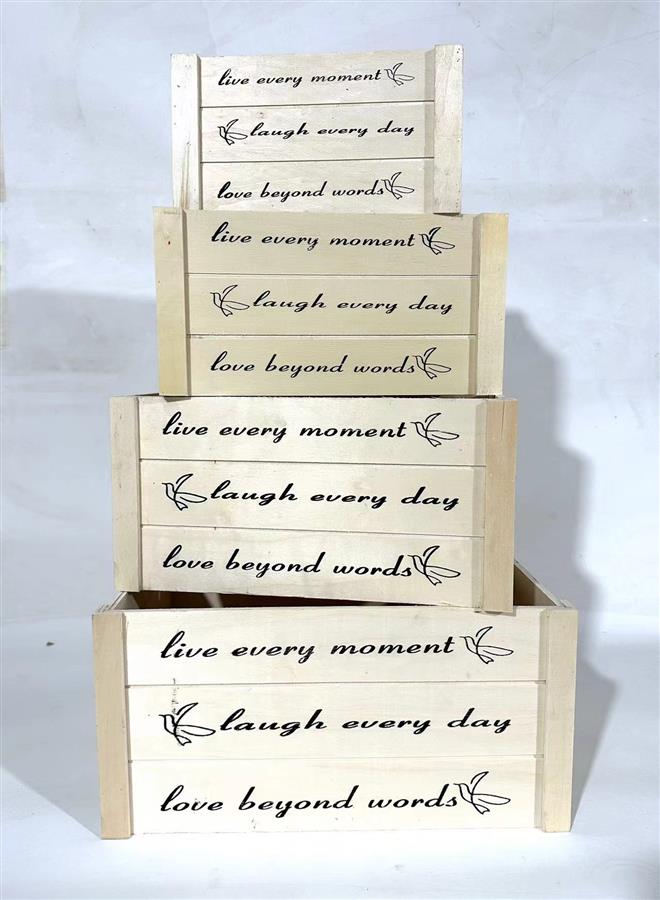 live every moment
laugh every day
love beyond words
live every moment
laugh every day
love beyond words
live every moment
laugh every day
love beyond words
live every moment
laugh every day
love beyond words